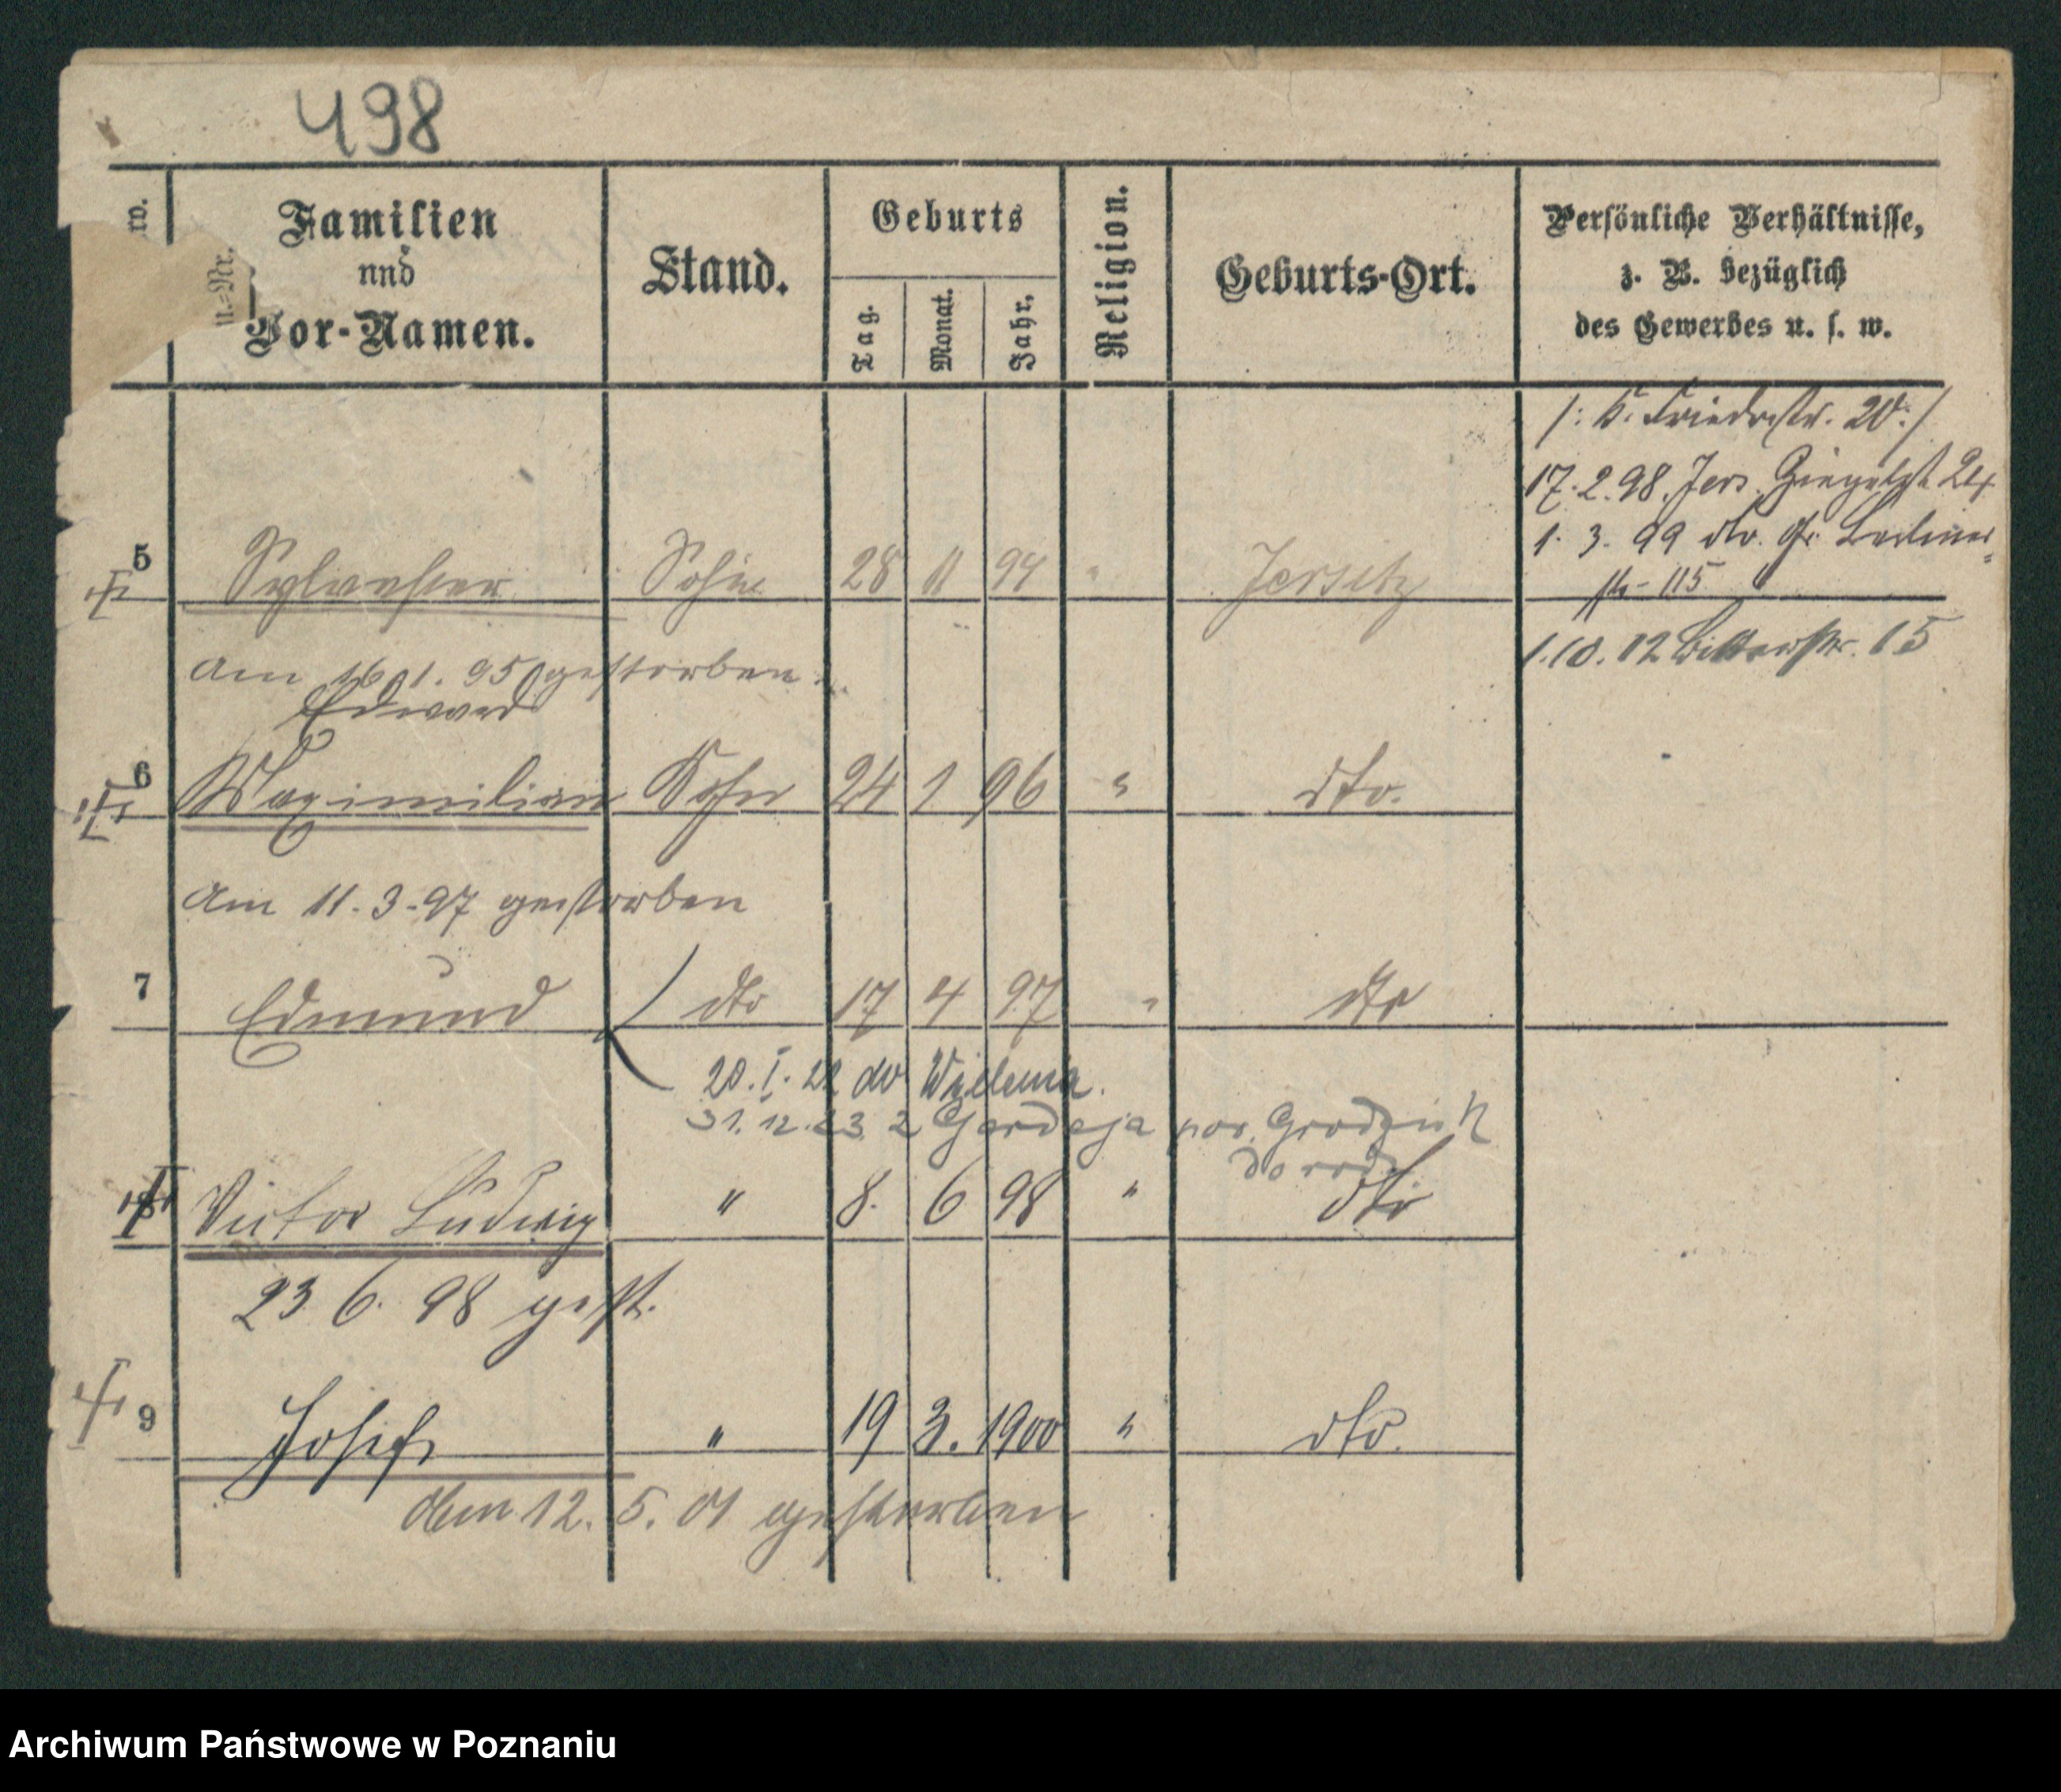 498
w.
u.=Nr.
Familien
und
Vor-Namen.
Stand.
Geburts
Tag.
Monat.
Jahr.
Religion.
Geburts-Ort.
Persönliche Verhältnisse,
z. B. bezüglich
des Gewerbes u. s. w.
/: K. Friedrstr. 20 :/
17. 2. 98. Jers. 24
1. 3. 99 dto. Gr. Berliner
str. 115
5 Sylvester Sohn 28 11 94 " Jersitz
1. 10. 02 15
Am 16 1. 95 gestorben.
Eduard
6 Maximilian Sohn 24 1 96 " dto.
Am 11. 3. 97 gestorben
7 Edmund dto 17 4 97 " dto
20. I. 22 do
31. 12. 23 z pow. Grodzisk
do
8 Victor Ludwig " 8. 6 98 " dto
23 6. 98 gest.
9 Josef " 19 3. 1900 " dto.
Am 12. 5. 01 gestorben
Archiwum Państwowe w Poznaniu